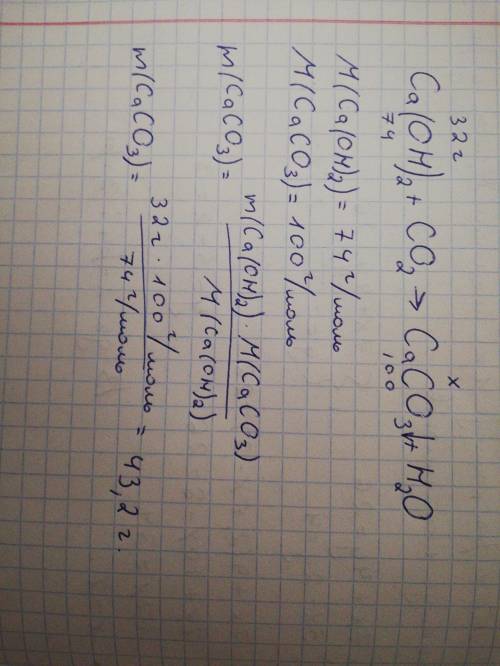 32г x
Ca(OH)₂ + CO₂ → CaCO₃↓ + H₂O
74 100
M(Ca(OH)₂) = 74 г/моль
M(CaCO₃) = 100 г/моль
m(CaCO₃) = m(Ca(OH)₂) · M(CaCO₃)
M(Ca(OH)₂)
m(CaCO₃) = 32г · 100 г/моль = 43,2 г.
74 г/моль